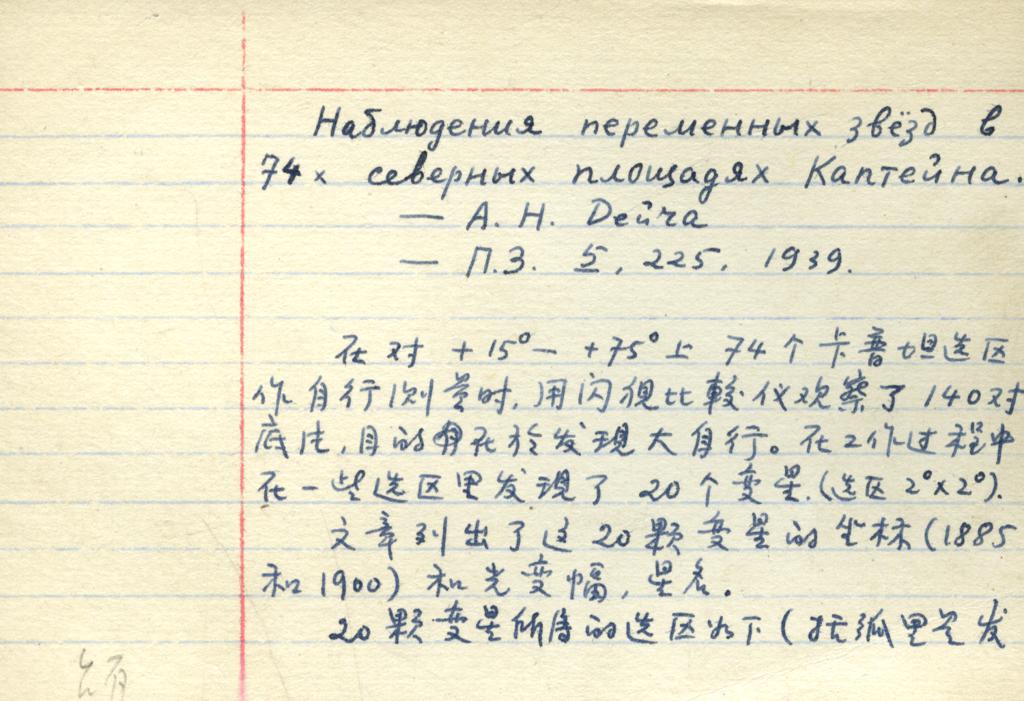 Наблюдения переменных звёзд в
74х северных площадях Каптейна.
— А. Н. Дейча
— П.З. 5, 225, 1939.
在对 +15°— +75°上 74个卡普坦选区
作自行测量时,用闪视比較仪观察了140对
底片,目的在於发現大自行。在工作过程中
在一些选区里发現了 20个变星.(选区 2°×2°).
文章列出了这20颗变星的坐标(1885
和1900)和光变幅,星名.
20颗变星所属的选区如下(括弧里是发